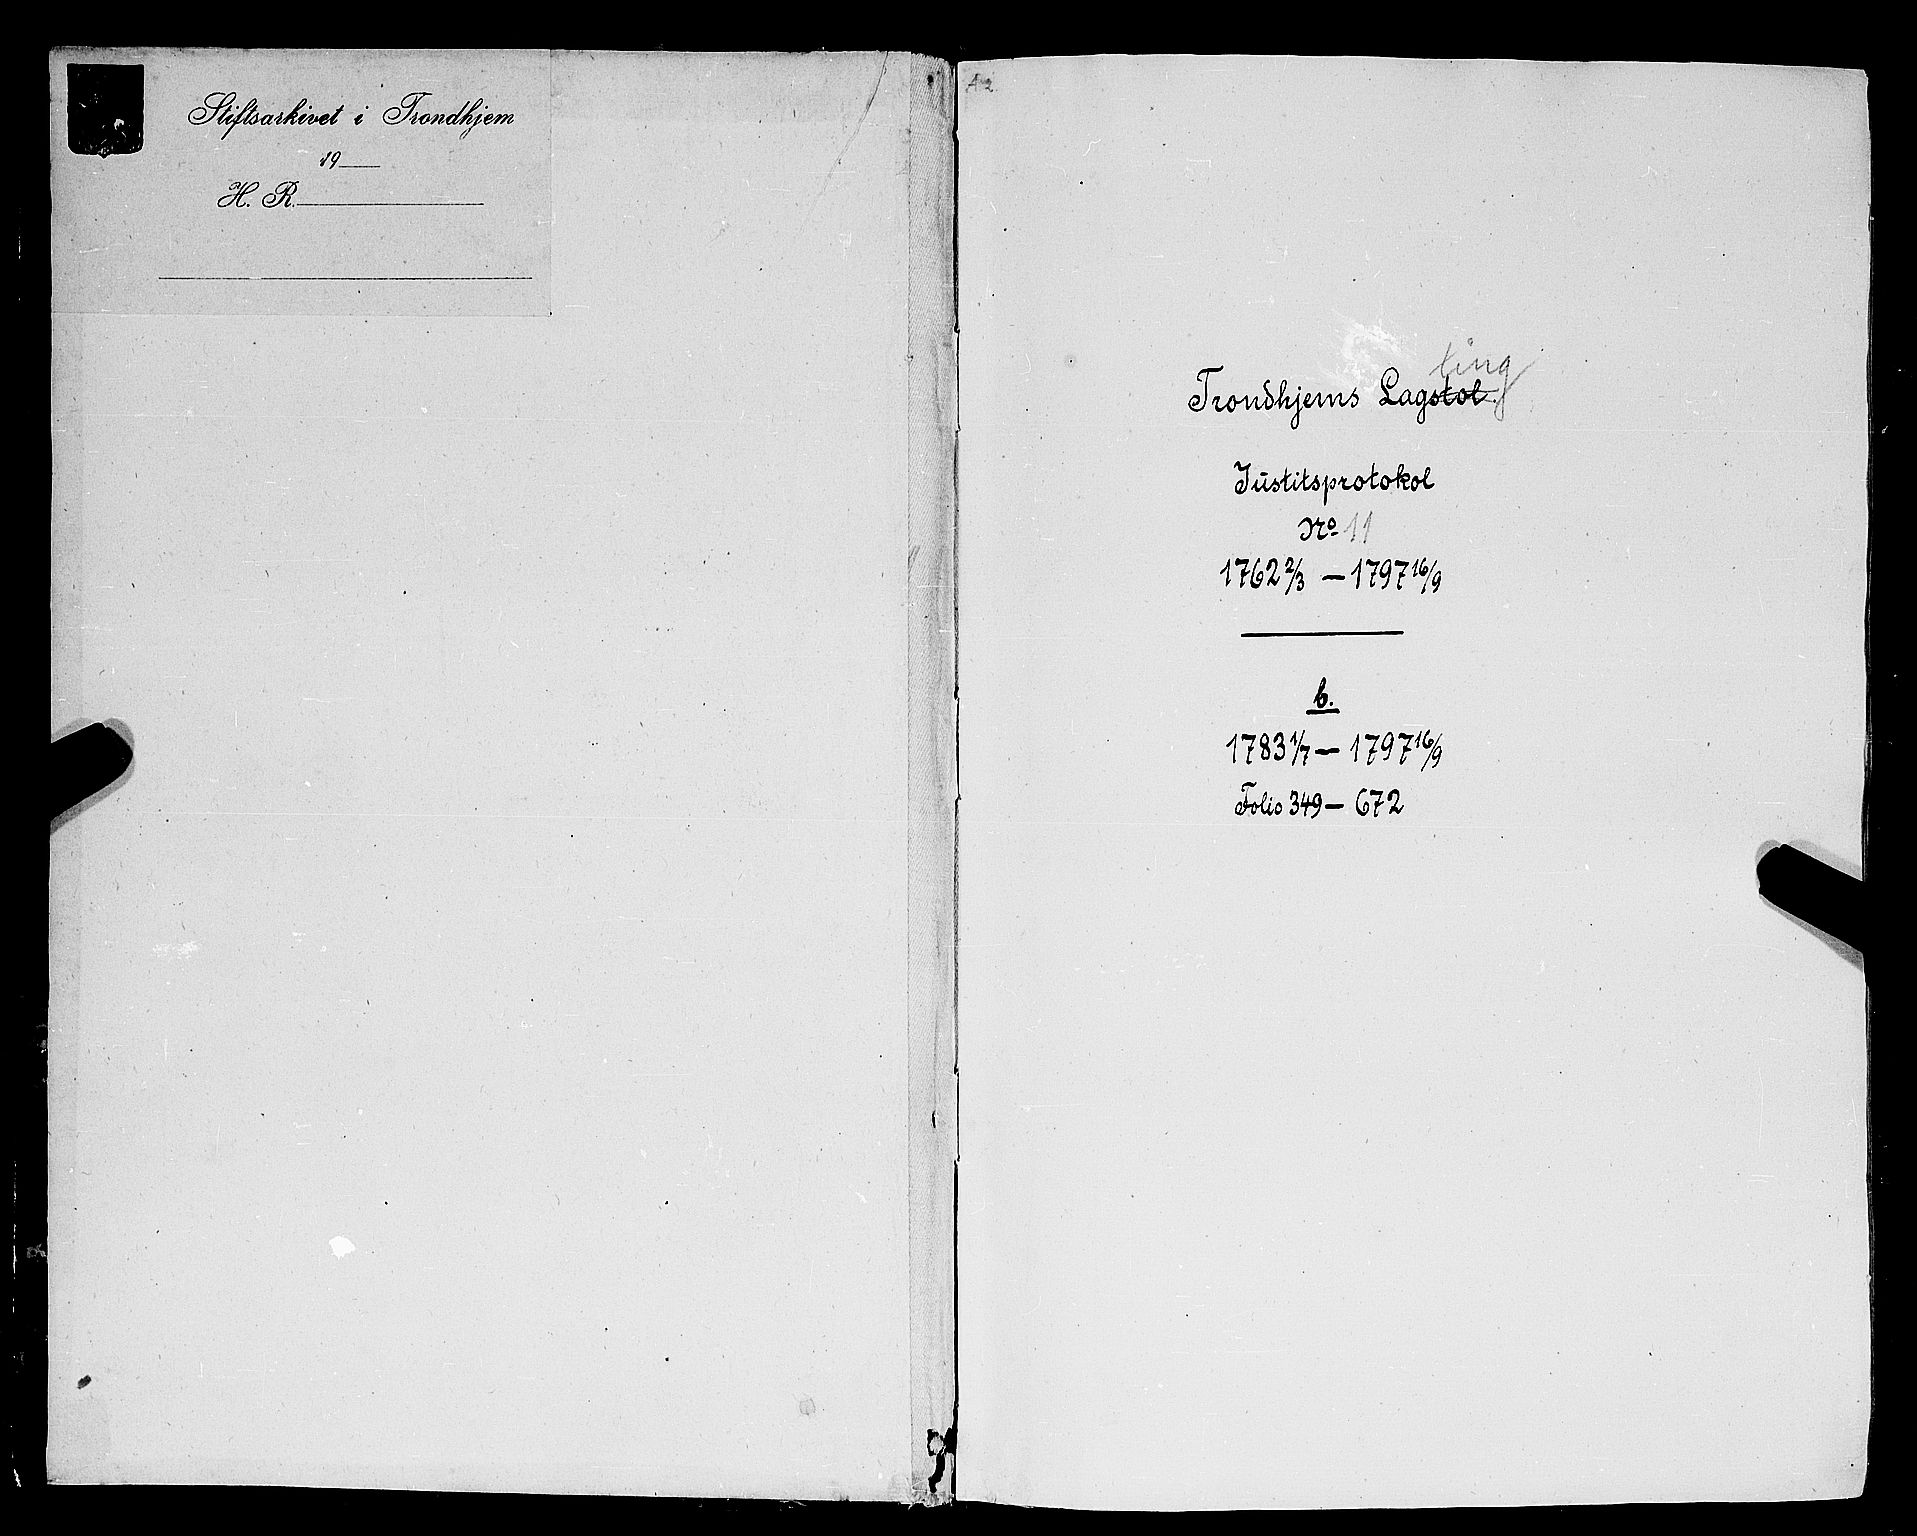 Stiftsarkivet i Trondhjem
19
H. R.
A2
ting
Trondhjems Lagstol.
Justitsprotokol
No 11
1762 2/3 – 1797 16/9
b.
1783 1/7 – 1797 16/9
Folio 349 – 672